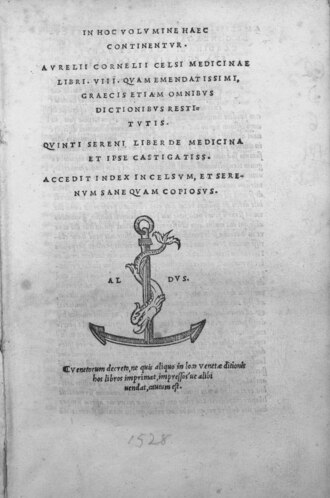 IN HOC VOLVMINE HAEC
CONTINENTVR.
AVRELII CORNELII CELSI MEDICINAE
LIBRI. VIII. QVAM EMENDATISSIMI,
GRAECIS ETIAM OMNIBVS
DICTIONIBVS RESTI-
TVTIS.
QVINTI SERENI LIBER DE MEDICINA
ET IPSE CASTIGATISS.
ACCEDIT INDEX IN CELSVM, ET SERE-
NVM SANE QVAM COPIOSVS.
AL DVS.
Venetorum decreto, ne quis aliquo in loco Venetae ditionis
hos libros imprimat, impressos ue alibi
uendat, cautum est.
1528